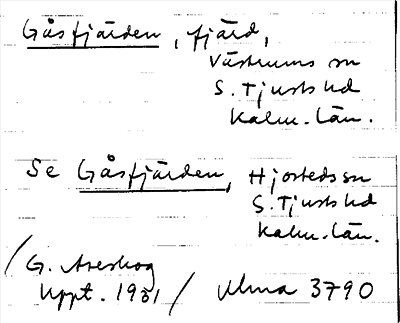 Gåsfjärden, fjärd,
Västrums sn
S. Tjusts hd
Kalm. län.
Se Gåsfjärden, Hjorteds sn
S. Tjusts hd
Kalm. län.
/ G. Areskog
Uppt. 1931 / Ulma 3790